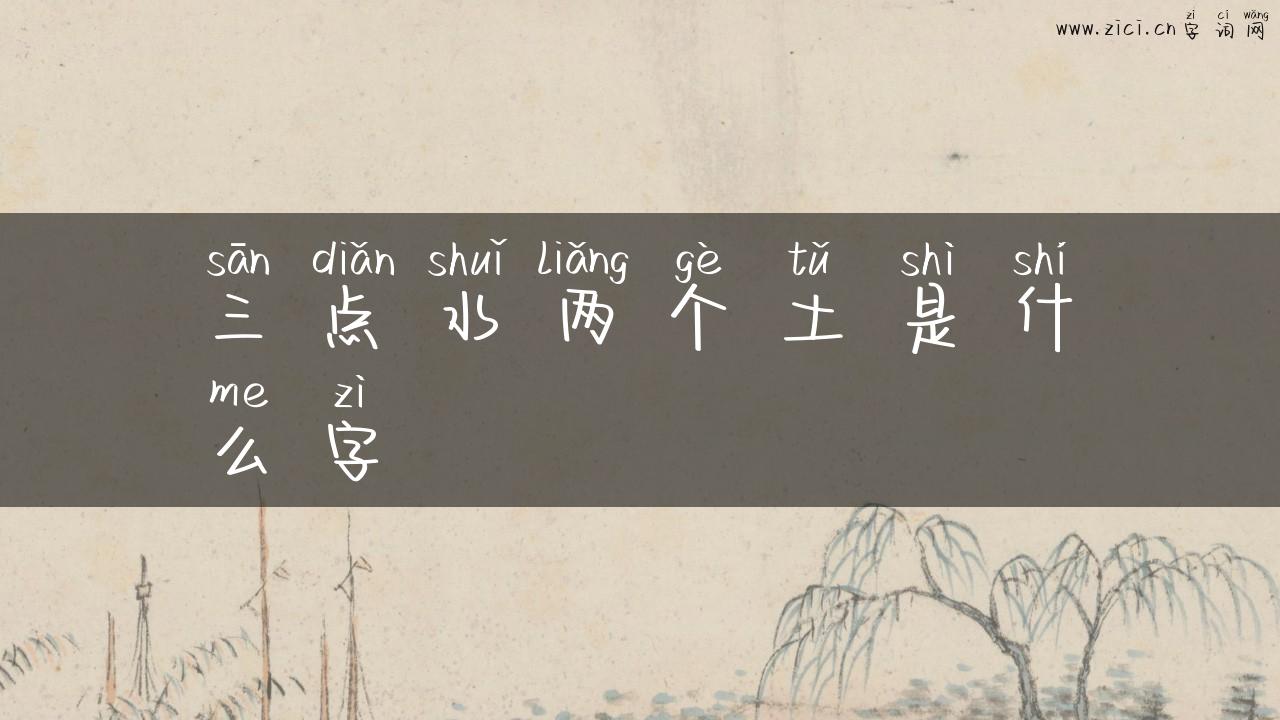 zì cí wǎng
www.zici.cn 字词网
sān diǎn shuǐ liǎng gè tǔ shì shí
三点水两个土是什
me zì
么字